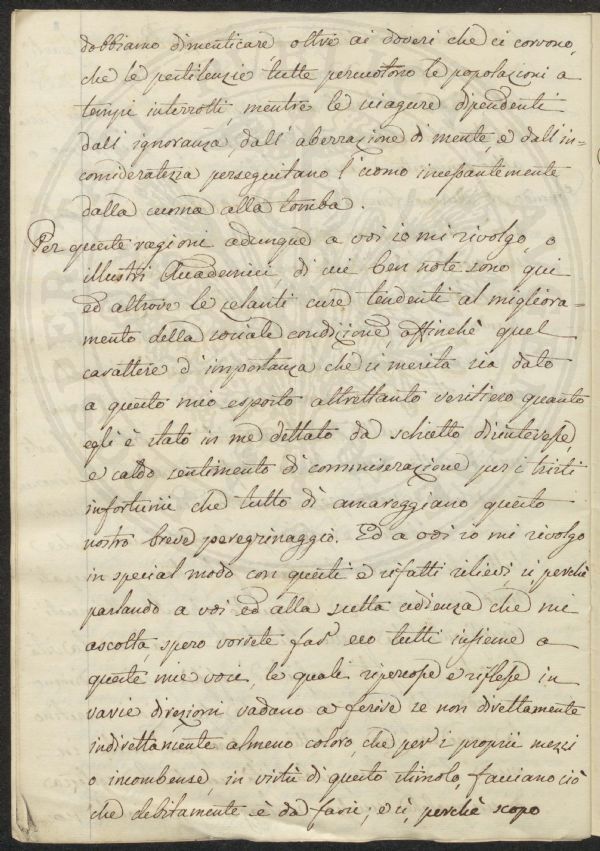 dobbiamo dimenticare oltre ai doveri che ci corrono,
che le pestilenzie tutte percuotono le popolazioni a
tempi interrotti, mentre le sciagure dipendenti
dall'ignoranza, dall'aberrazione di mente e dall'in=
consideratezza perseguitano l'uomo incessantemente
dalla cuna alla tomba.
Per queste ragioni adunque a voi io mi rivolgo, o
illustri Accademici, di cui ben note sono qui
ed altrove le zelanti cure tendenti al migliora=
mento della sociale condizione, affinchè quel
carattere d'importanza che si merita sia dato
a questo mio esposto altrettanto veritiero quanto
egli è stato in me dettato da schietto disinteresse,
e caldo sentimento di commiserazione per i tristi
infortunii che tutto dì amareggiano questo
nostro breve peregrinaggio. Ed a voi io mi rivolgo
in special modo con questi e siffatti rilievi, sì perchè
parlando a voi ed alla scelta udienza che mi
ascolta, spero vorrete far eco tutti insieme a
queste mie voci, le quali ripercosse e riflesse in
varie direzioni vadano a ferire se non direttamente
indirettamente almeno coloro, che per i proprii mezzi
o incombense, in virtù di questo stimolo, facciano ciò
che debitamente è da farsi; e sì, perchè scopo